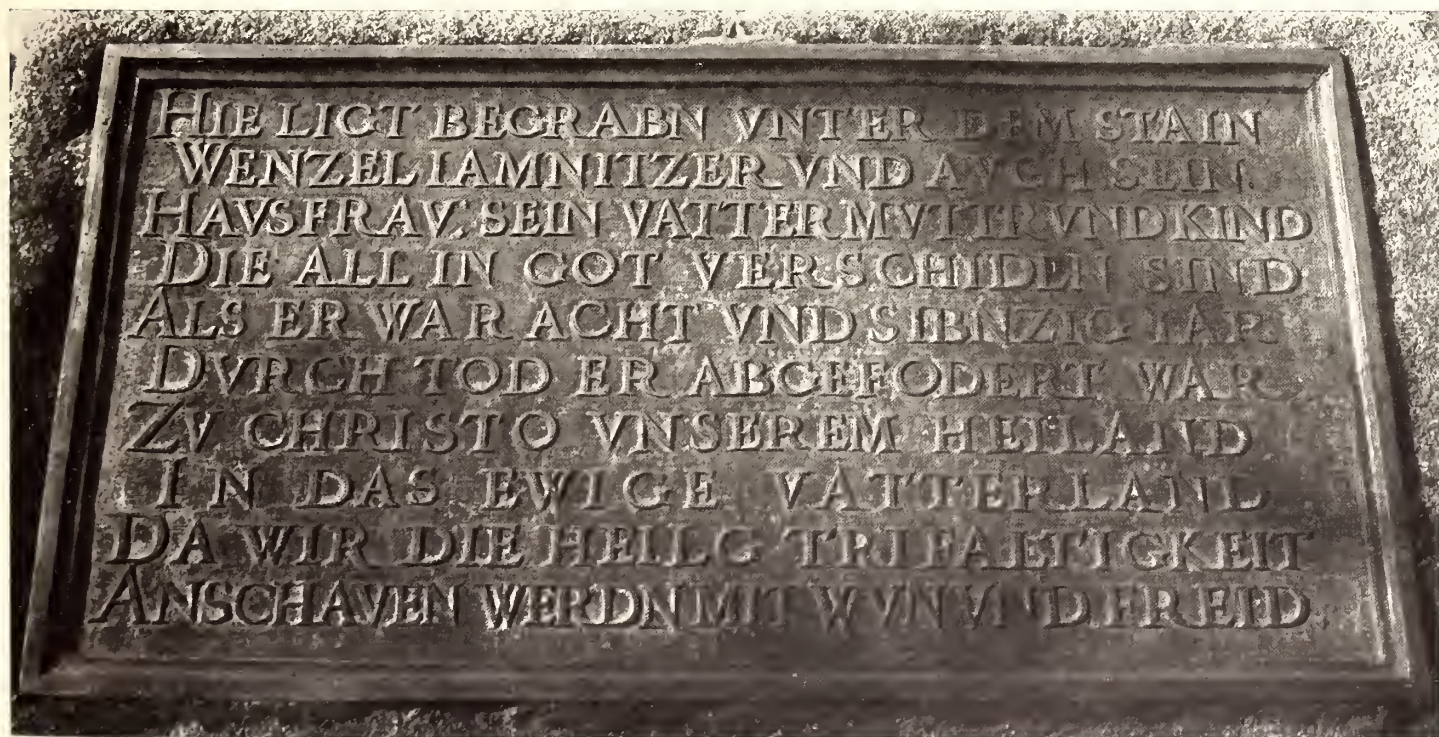 HIE LIGT BEGRABN VNTER DEM STAIN
WENZEL IAMNITZER VND AVCH SEIN
HAVSFRAV, SEIN VATTER MVTTR VND KIND
DIE ALL IN GOT VERSCHIDEN SIND
ALS ER WAR ACHT VND SIBNZIG IAR
DVRCH TOD ER ABGEFODERT WAR
ZV CHRISTO VNSEREM HEILAND
IN DAS EWIGE VATTERLAND
DA WIR DIE HEILG TRIFALTIGKEIT
ANSCHAVEN WERDN MIT WVN VND FREID